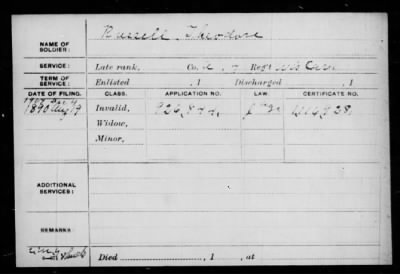 NAME OF SOLDIER: Russell, Theodore
SERVICE: Late rank, Co. Reg't Cav
TERM OF SERVICE: Enlisted , 1 Discharged , 1
DATE OF FILING. CLASS. APPLICATION NO. LAW. CERTIFICATE NO.
1890 Aug 19 Invalid, 926,844
Widow,
Minor,
ADDITIONAL SERVICES:
REMARKS:
Died , 1 , at